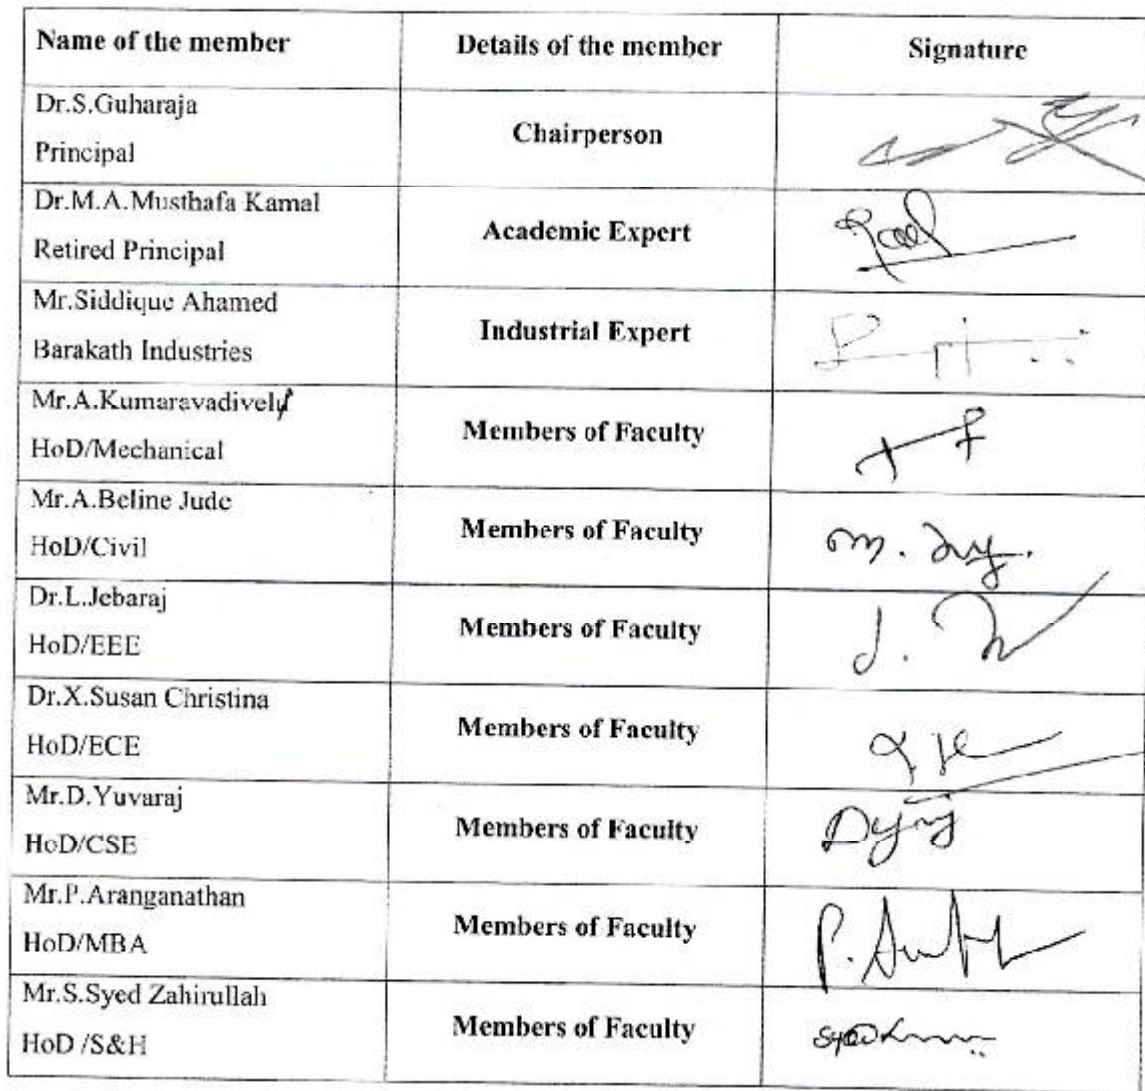 Name of the member
Details of the member
Signature
Dr.S.Guharaja
Principal
Chairperson
Dr.M.A.Musthafa Kamal
Retired Principal
Academic Expert
Mr.Siddique Ahamed
Barakath Industries
Industrial Expert
Mr.A.Kumaravadivelu
HoD/Mechanical
Members of Faculty
Mr.A.Beline Jude
HoD/Civil
Members of Faculty
Dr.L.Jebaraj
HoD/EEE
Members of Faculty
Dr.X.Susan Christina
HoD/ECE
Members of Faculty
Mr.D.Yuvaraj
HoD/CSE
Members of Faculty
Mr.P.Aranganathan
HoD/MBA
Members of Faculty
Mr.S.Syed Zahirullah
HoD /S&H
Members of Faculty